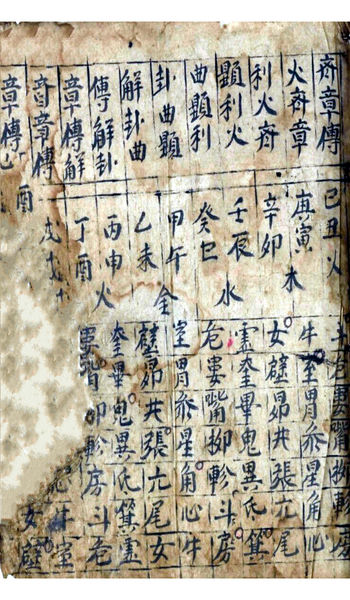 斉章傳
火斉章
利火斉
顕利火
曲顕利
卦曲顕
解卦曲
傳解卦
章傳解
斉章傳
章傳
己丑火
庚寅木
辛卯
壬辰水
癸巳
甲午金
乙未
丙申火
丁酉
酉
婁嘴柳軫房
牛室胃參星角心
女壁昴井張亢尾
虛奎畢鬼異氐箕
危婁嘴柳軫房斗
室胃參星角心牛
壁昴井張亢尾女
奎畢鬼異氐箕虛
婁嘴柳軫房斗危
心牛室
女壁